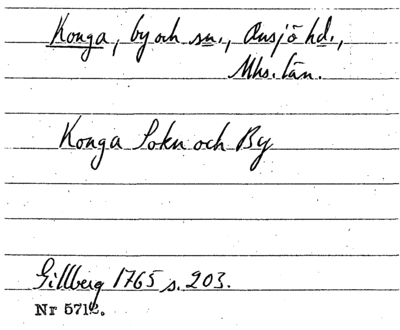 Konga, by och sn., Onsjö hd.,
Mhs. län.
Konga Sokn och By
Gillberg 1765 s. 203.
Nr 5712.